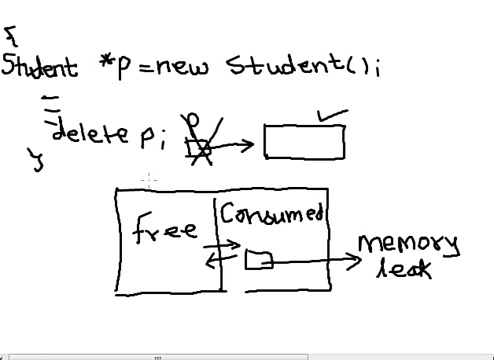 {
Student *p = new Student();
delete p;
p
}
free
Consumed
memory
leak